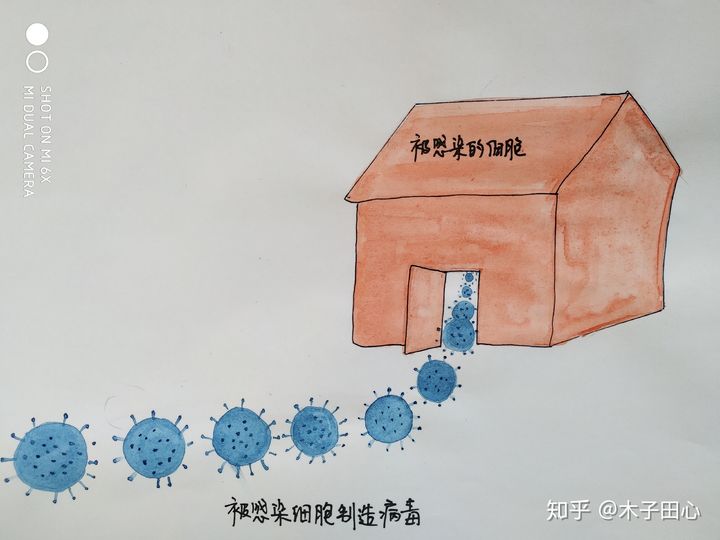 SHOT ON MI 6X
MI DUAL CAMERA
被感染的细胞
被感染细胞制造病毒
知乎 @木子田心